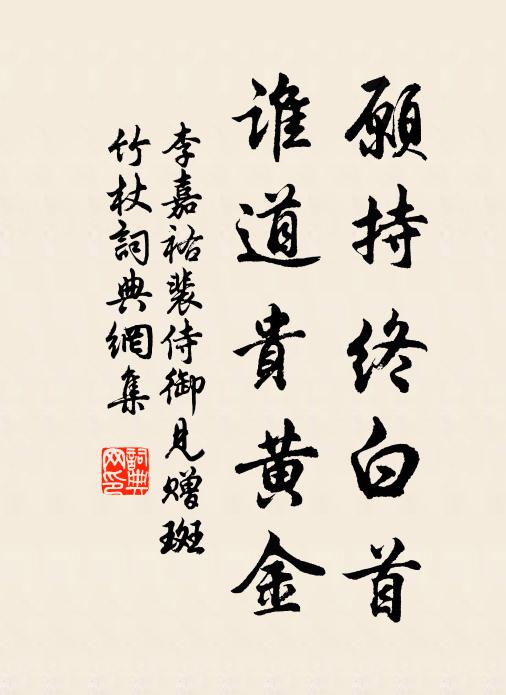 願持終白首
誰道貴黃金
李嘉祐裴侍御見贈斑
竹杖詞典網集
詞典网印